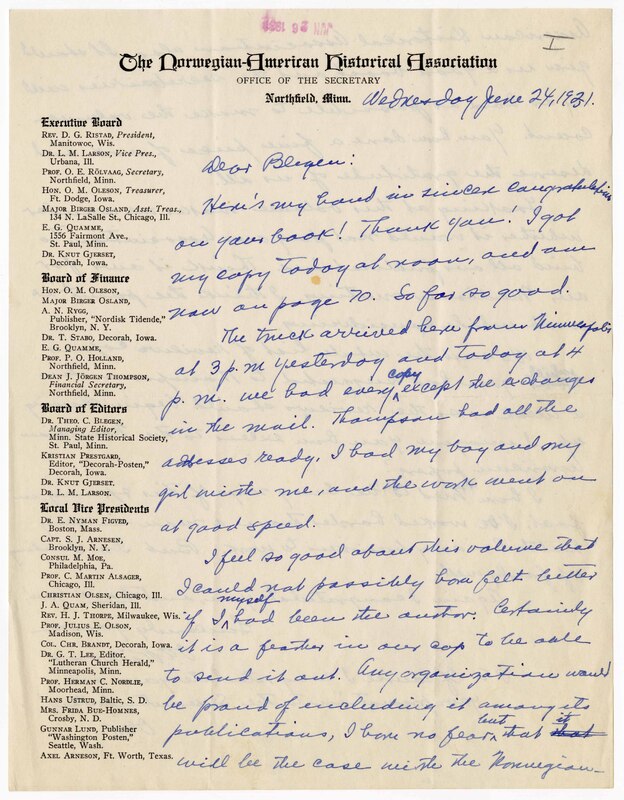 JAN 26 1931
I
The Norwegian-American Historical Association
OFFICE OF THE SECRETARY
Northfield, Minn. Wednesday June 24, 1931.
Executive Board
REV. D. G. RISTAD, President,
Manitowoc, Wis.
DR. L. M. LARSON, Vice Pres.,
Urbana, Ill.
PROF. O. E. RÖLVAAG, Secretary,
Northfield, Minn.
HON. O. M. OLESON, Treasurer,
Ft. Dodge, Iowa.
MAJOR BIRGER OSLAND, Asst. Treas.,
134 N. LaSalle St., Chicago, Ill.
E. G. QUAMME,
1556 Fairmont Ave.,
St. Paul, Minn.
DR. KNUT GJERSET,
Decorah, Iowa.
Board of Finance
HON. O. M. OLESON,
MAJOR BIRGER OSLAND,
A. N. RYGG,
Publisher, "Nordisk Tidende,"
Brooklyn, N. Y.
DR. T. STABO, Decorah, Iowa.
E. G. QUAMME,
PROF. P. O. HOLLAND,
Northfield, Minn.
DEAN J. JÖRGEN THOMPSON,
Financial Secretary,
Northfield, Minn.
Board of Editors
DR. THEO. C. BLEGEN,
Managing Editor,
Minn. State Historical Society,
St. Paul, Minn.
KRISTIAN PRESTGARD,
Editor, "Decorah-Posten,"
Decorah, Iowa.
DR. KNUT GJERSET.
DR. L. M. LARSON.
Local Vice Presidents
DR. E. NYMAN FIGVED,
Boston, Mass.
CAPT. S. J. ARNESEN,
Brooklyn, N. Y.
CONSUL M. MOE,
Philadelphia, Pa.
PROF. C. MARTIN ALSAGER,
Chicago, Ill.
CHRISTIAN OLSEN, Chicago, Ill.
J. A. QUAM, Sheridan, Ill.
REV. H. J. THORPE, Milwaukee, Wis.
PROF. JULIUS E. OLSON,
Madison, Wis.
COL. CHR. BRANDT, Decorah, Iowa.
DR. G. T. LEE, Editor,
"Lutheran Church Herald,"
Minneapolis, Minn.
PROF. HERMAN C. NORDLIE,
Moorhead, Minn.
HANS USTRUD, Baltic, S. D.
MRS. FRIDA BUE-HOMNES,
Crosby, N. D.
GUNNAR LUND, Publisher
"Washington Posten,"
Seattle, Wash.
AXEL ARNESON, Ft. Worth, Texas.
Dear Blegen:
Here's my hand in sincere congratulations
on your book! Thank you! I got
my copy today at noon, and am
now on page 70. So far so good.
The truck arrived here from Minneapolis
at 3 p.m yesterday and today at 4
p. m. we had every copy except the exchanges
in the mail. Thompson had all the
addresses ready. I had my boy and my
girl with me, and the work went on
at good speed.
I feel so good about this volume that
I could not possibly have felt better
if I myself had been the author. Certainly
it is a feather in our cap to be able
to send it out. Any organization would
be proud of including it among its
publications, I have no fear but that it that
will be the case with the Norwegian-